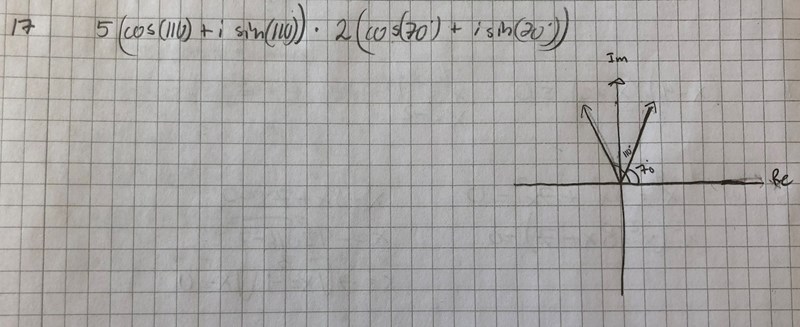 17 5(cos(110) + i sin(110°)) · 2(cos(70°) + i sin(70°))
Im
110°
70°
Re